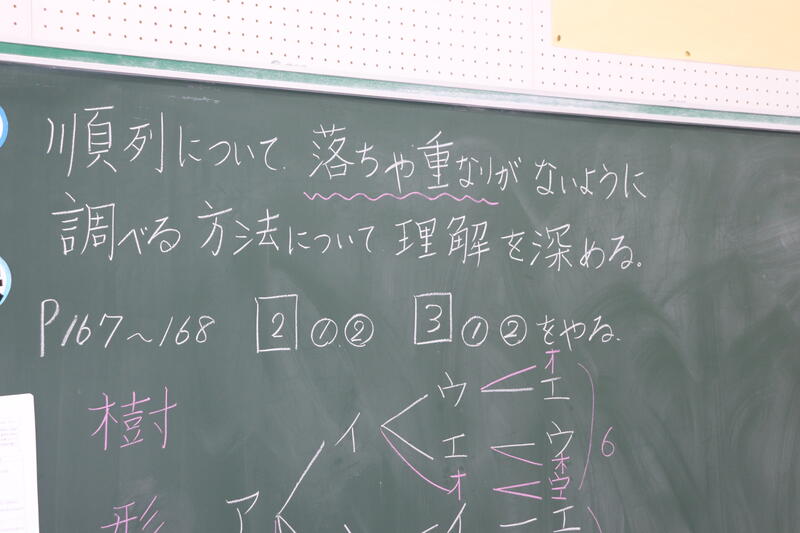 順列について、落ちや重なりがないように
調べる方法について理解を深める。
P167～168 2 ① ② 3 ① ② をやる。
樹形
ア
イ
ウ
オ
エ
エ
ウ
オ
オ
ウ
エ
6
イ
エ